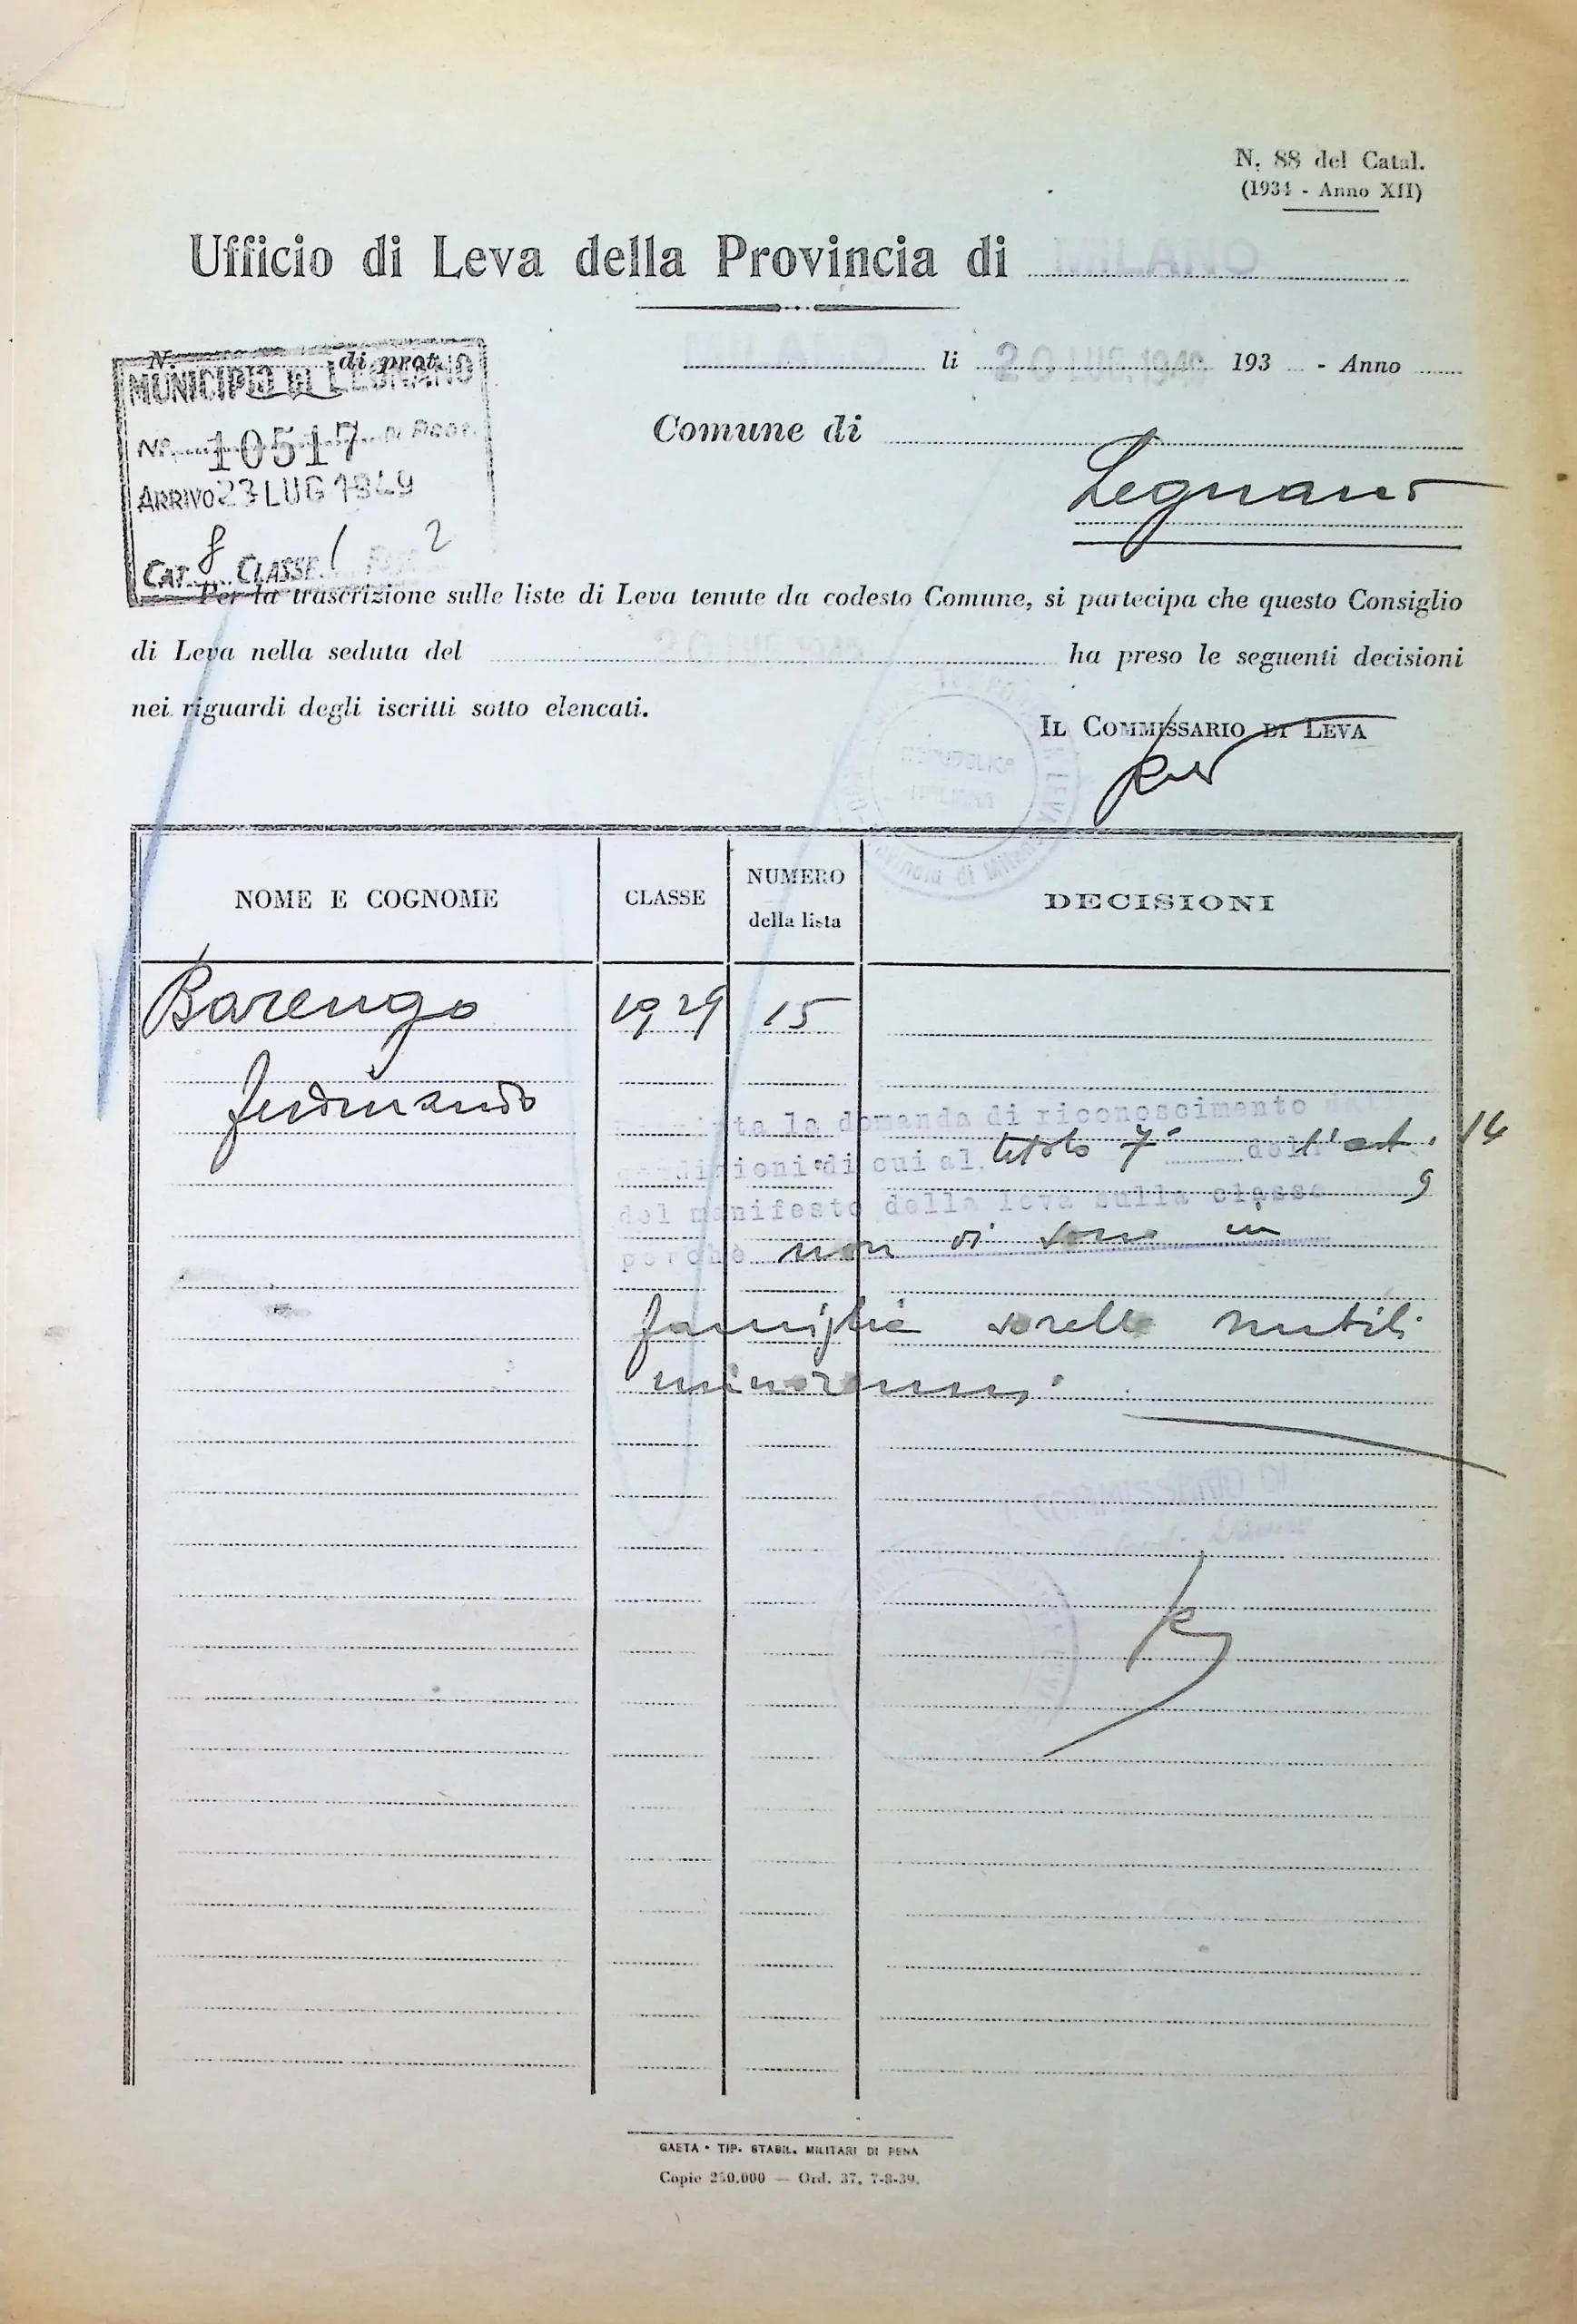 N. 88 del Catal.
(1934 - Anno XII)
Ufficio di Leva della Provincia di MILANO
N. di prot.
MUNICIPIO DI LEGNANO
N°. 10517 DI PROT.
ARRIVO 23 LUG 1949
CAT. 8 CLASSE. 1 2
MILANO li 20 LUG. 1949 193 - Anno
Comune di
Legnano
Per la trascrizione sulle liste di Leva tenute da codesto Comune, si partecipa che questo Consiglio
di Leva nella seduta del 20 LUG 1949 ha preso le seguenti decisioni
nei riguardi degli iscritti sotto elencati.
IL COMMISSARIO DI LEVA
REPUBBLICA
ITALIANA
NOME E COGNOME CLASSE NUMERO della lista DECISIONI
Barengo 1929 15
Ferdinando
la domanda di riconoscimento
condizioni di cui al titolo 7° dell'art. 14
del manifesto della leva sulla classe 9
perchè non vi sono in
famiglia sorelle nubili
minorenni.
COMMISSARIO DI
GAETA - TIP. STABIL. MILITARI DI PENA
Copie 250.000 — Ord. 37, 7-8-39.